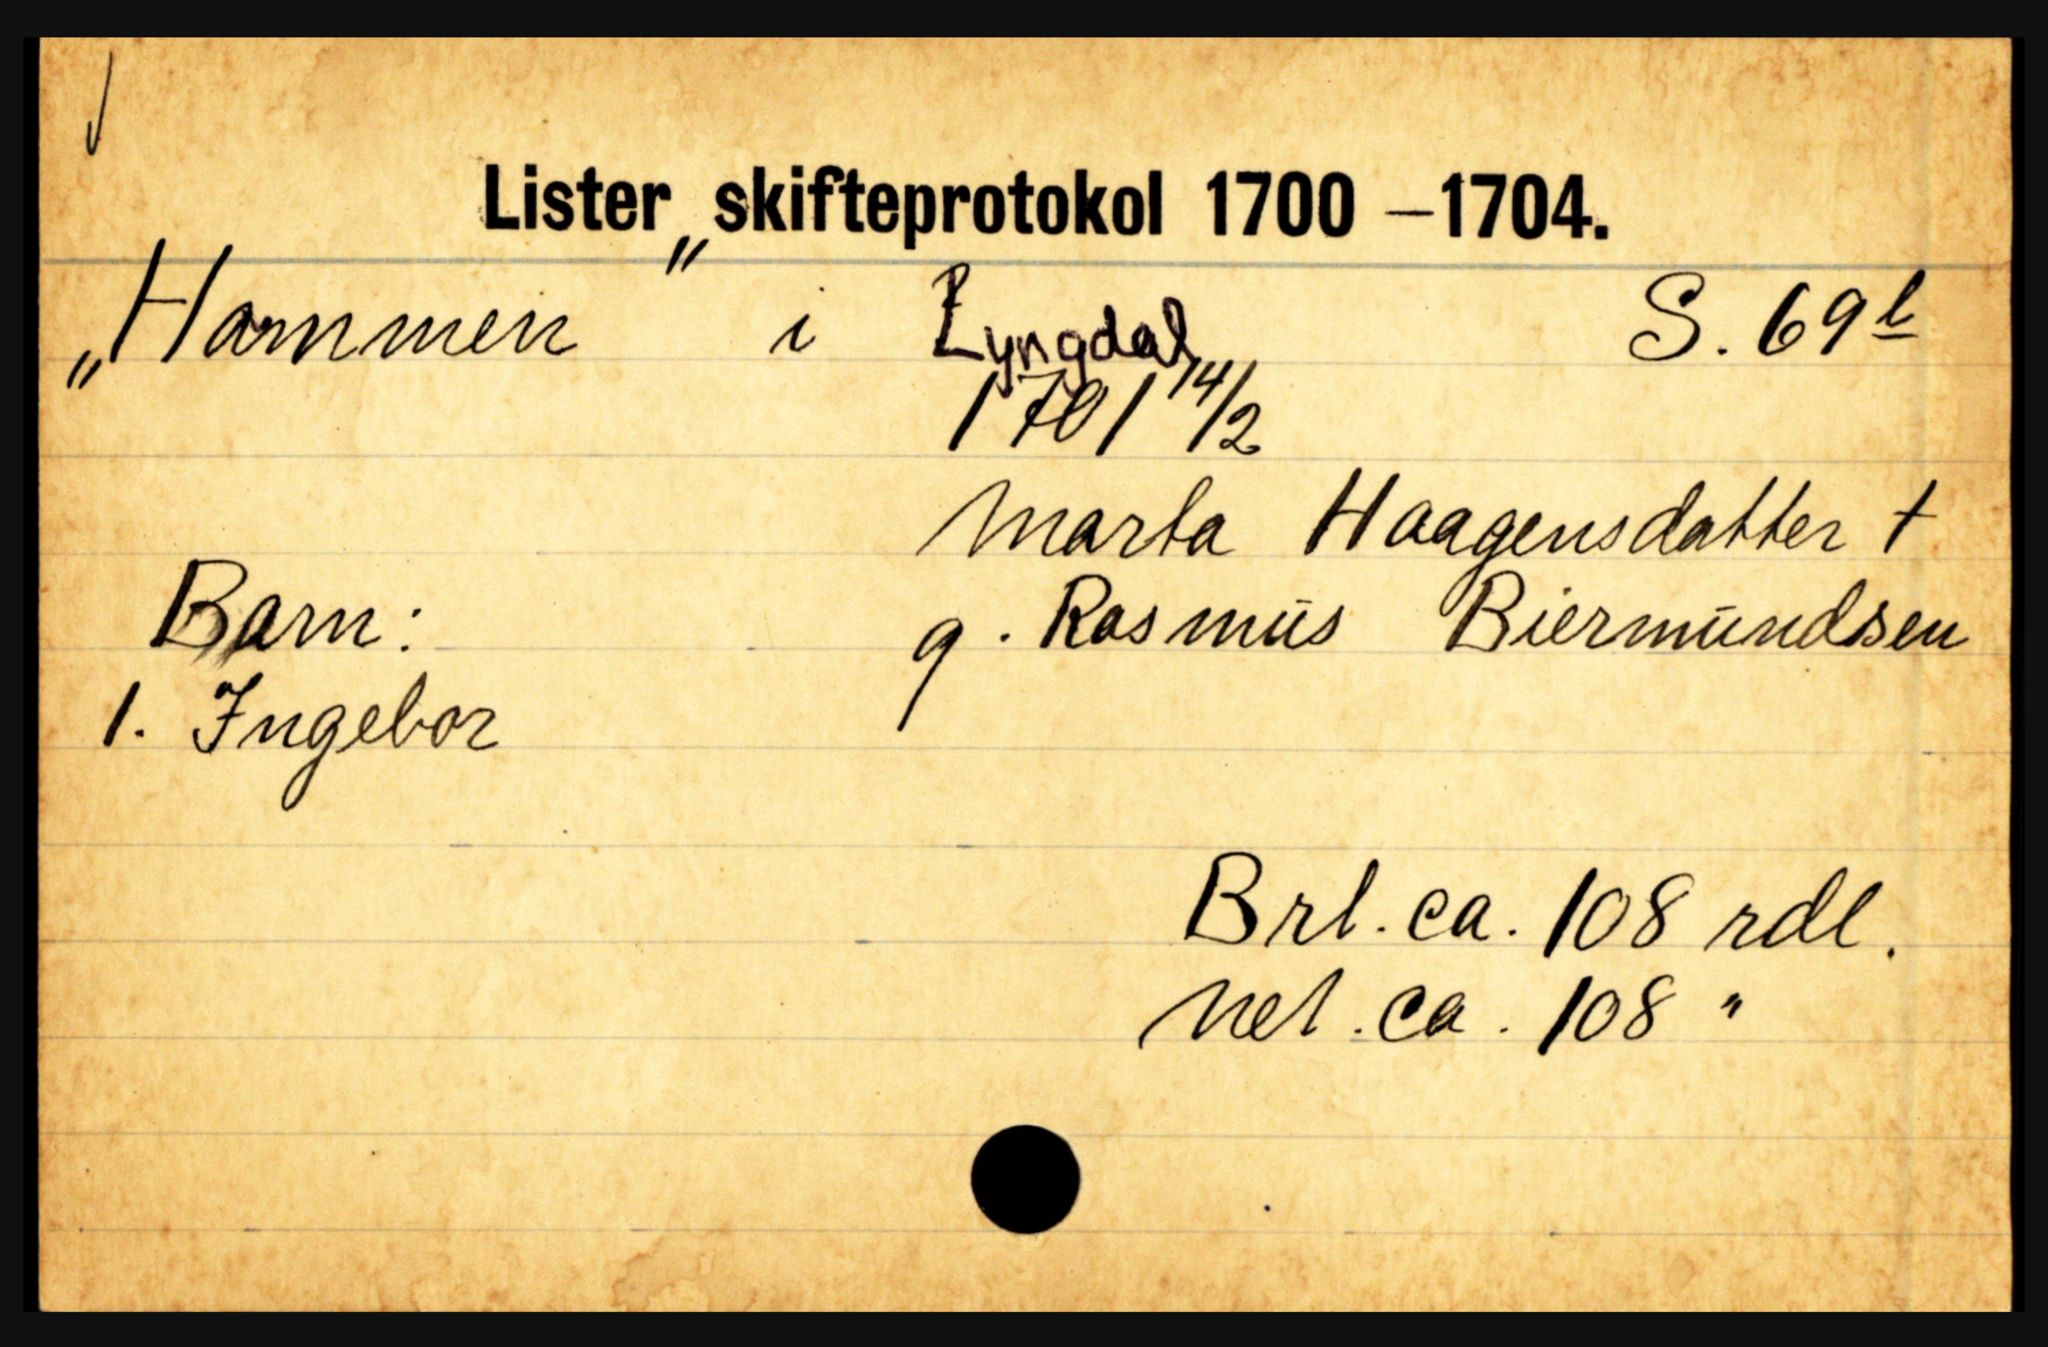 Lister skifteprotokol 1700 – 1704.
„Hammen" i Lyngdal S. 69b
1701 14/2
Marta Haagensdatter +
Barn: g. Rasmus Biermundsen
1. Ingebor
Brt. ca. 108 rdl.
Net. ca. 108 "